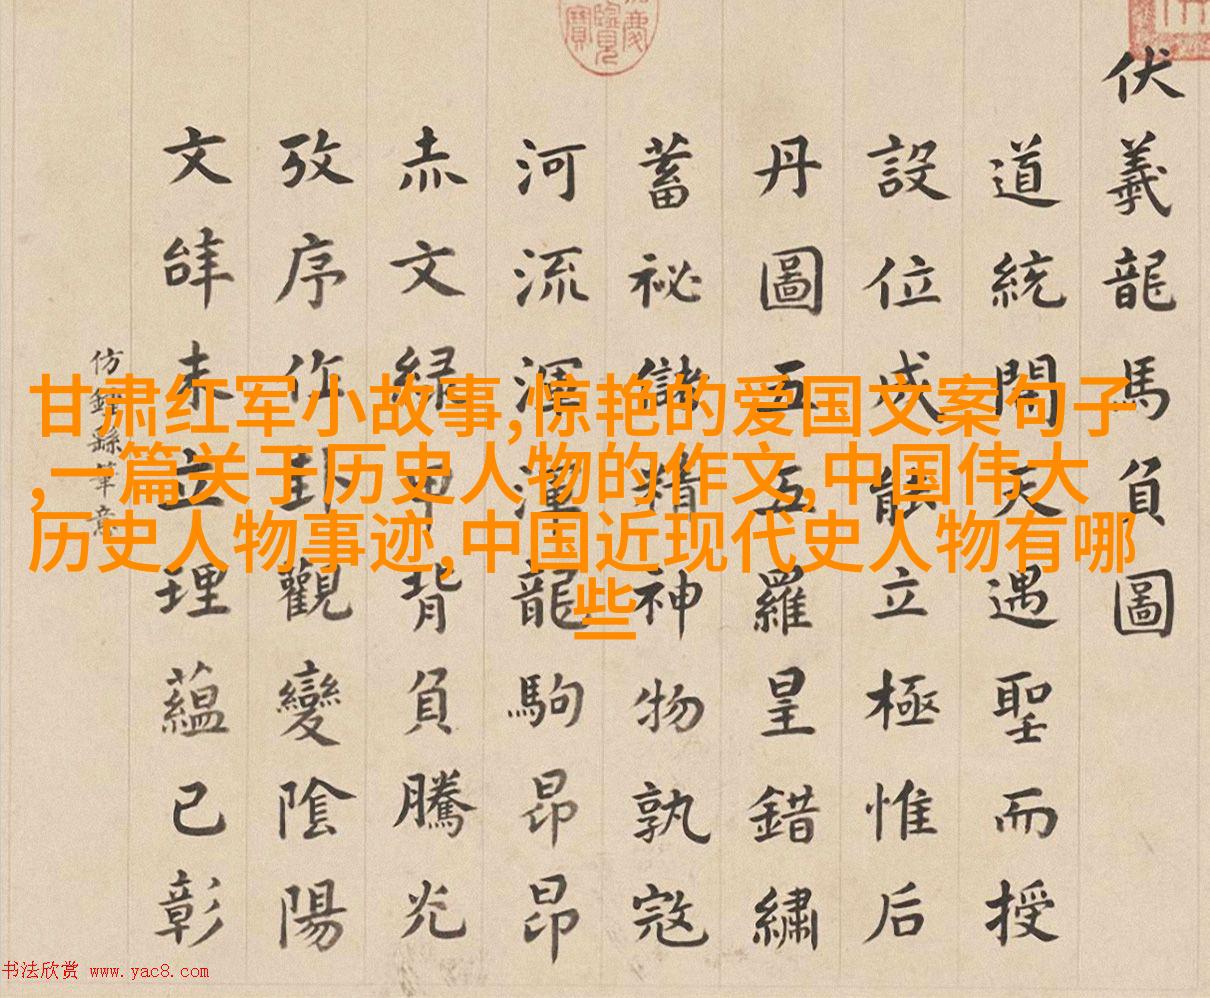 伏羲龍馬負圖
道統開天遇聖而授
設位成能立極惟后
丹圖五羅皇錯繡
蓄祕儲精神物孰寇
河流渾渾龍駒昂昂
赤文綠甲背負騰光
攷序作卦觀變陰陽
文辝未立理蘊已彰
仿鍾繇筆意
甘肃红军小故事,惊艳的爱国文案句子
,一篇关于历史人物的作文,中国伟大
历史人物事迹,中国近现代史人物有哪
些
书法欣赏 www.yac8.com